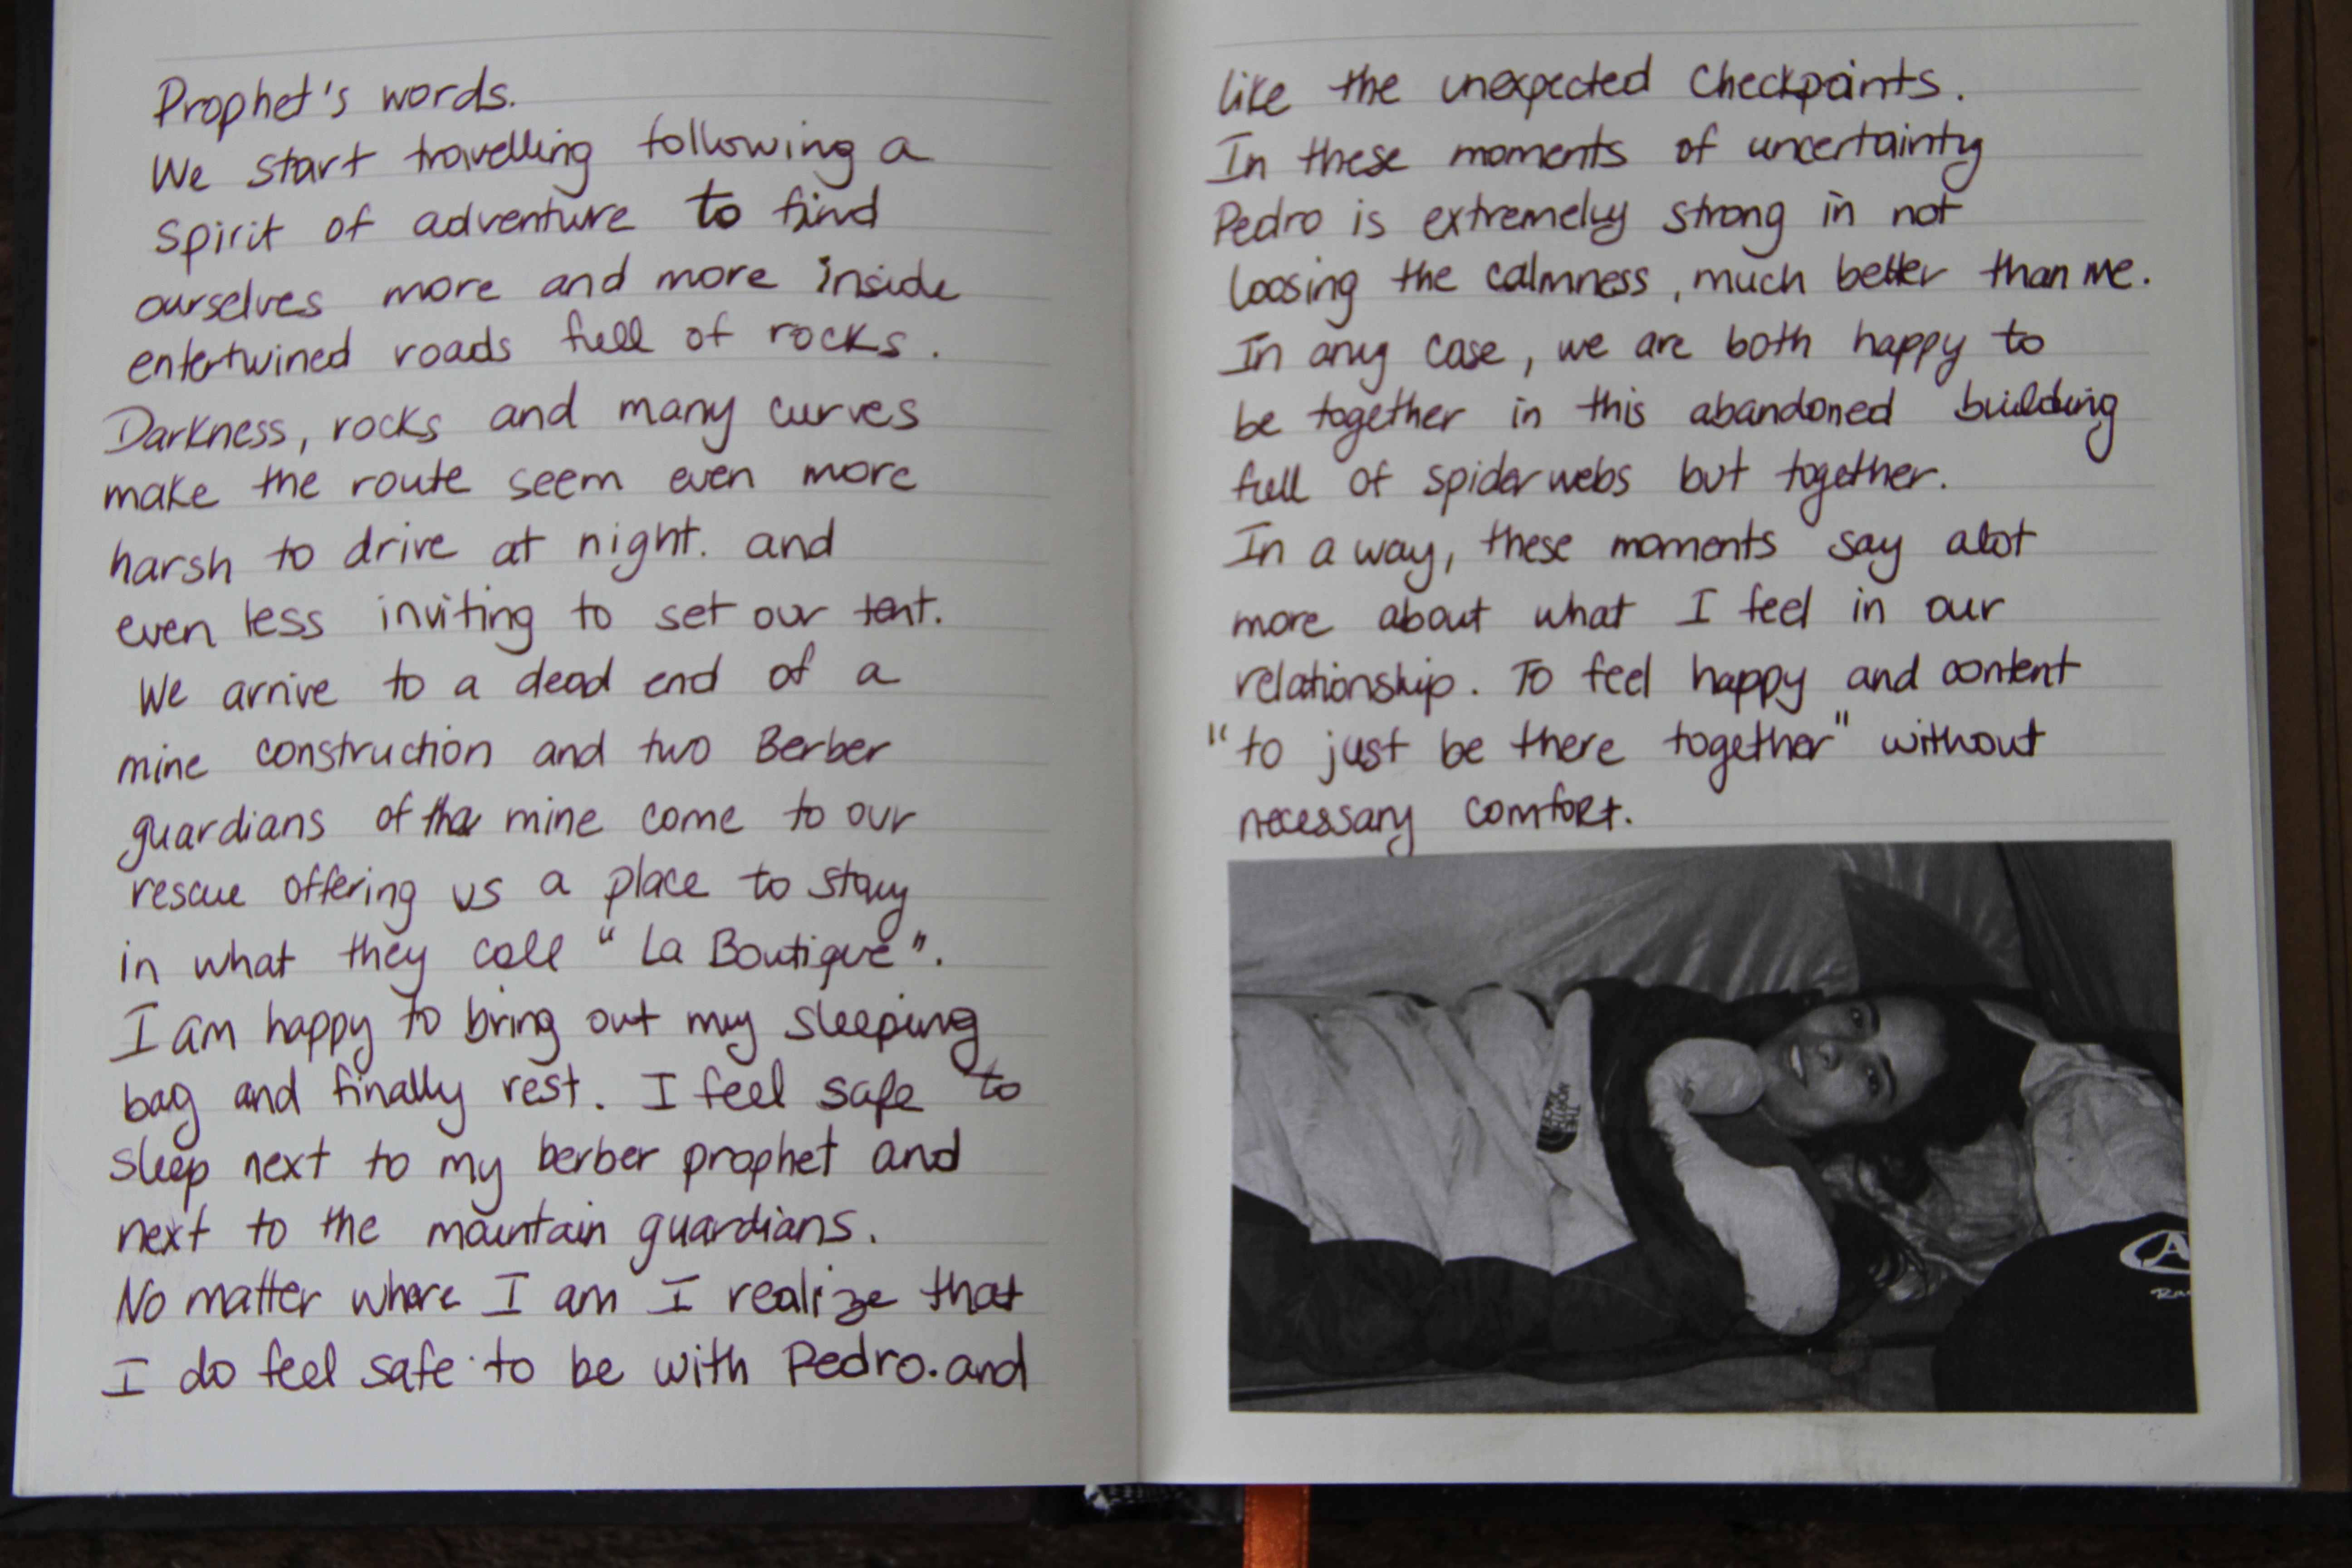 Prophet's words.
We start travelling following a
spirit of adventure to find
ourselves more and more inside
entertwined roads full of rocks.
Darkness, rocks and many curves
make the route seem even more
harsh to drive at night. and
even less inviting to set our tent.
We arrive to a dead end of a
mine construction and two Berber
guardians of the mine come to our
rescue offering us a place to stay
in what they call "La Boutique".
I am happy to bring out my sleeping
bag and finally rest. I feel safe to
sleep next to my berber prophet and
next to the mountain guardians.
No matter where I am I realize that
I do feel safe to be with Pedro. and
like the unexpected checkpoints.
In these moments of uncertainty
Pedro is extremely strong in not
loosing the calmness, much better than me.
In any case, we are both happy to
be together in this abandoned building
full of spider webs but together.
In a way, these moments say alot
more about what I feel in our
relationship. To feel happy and content
"to just be there together" without
necessary comfort.
THE
NORTH
FACE